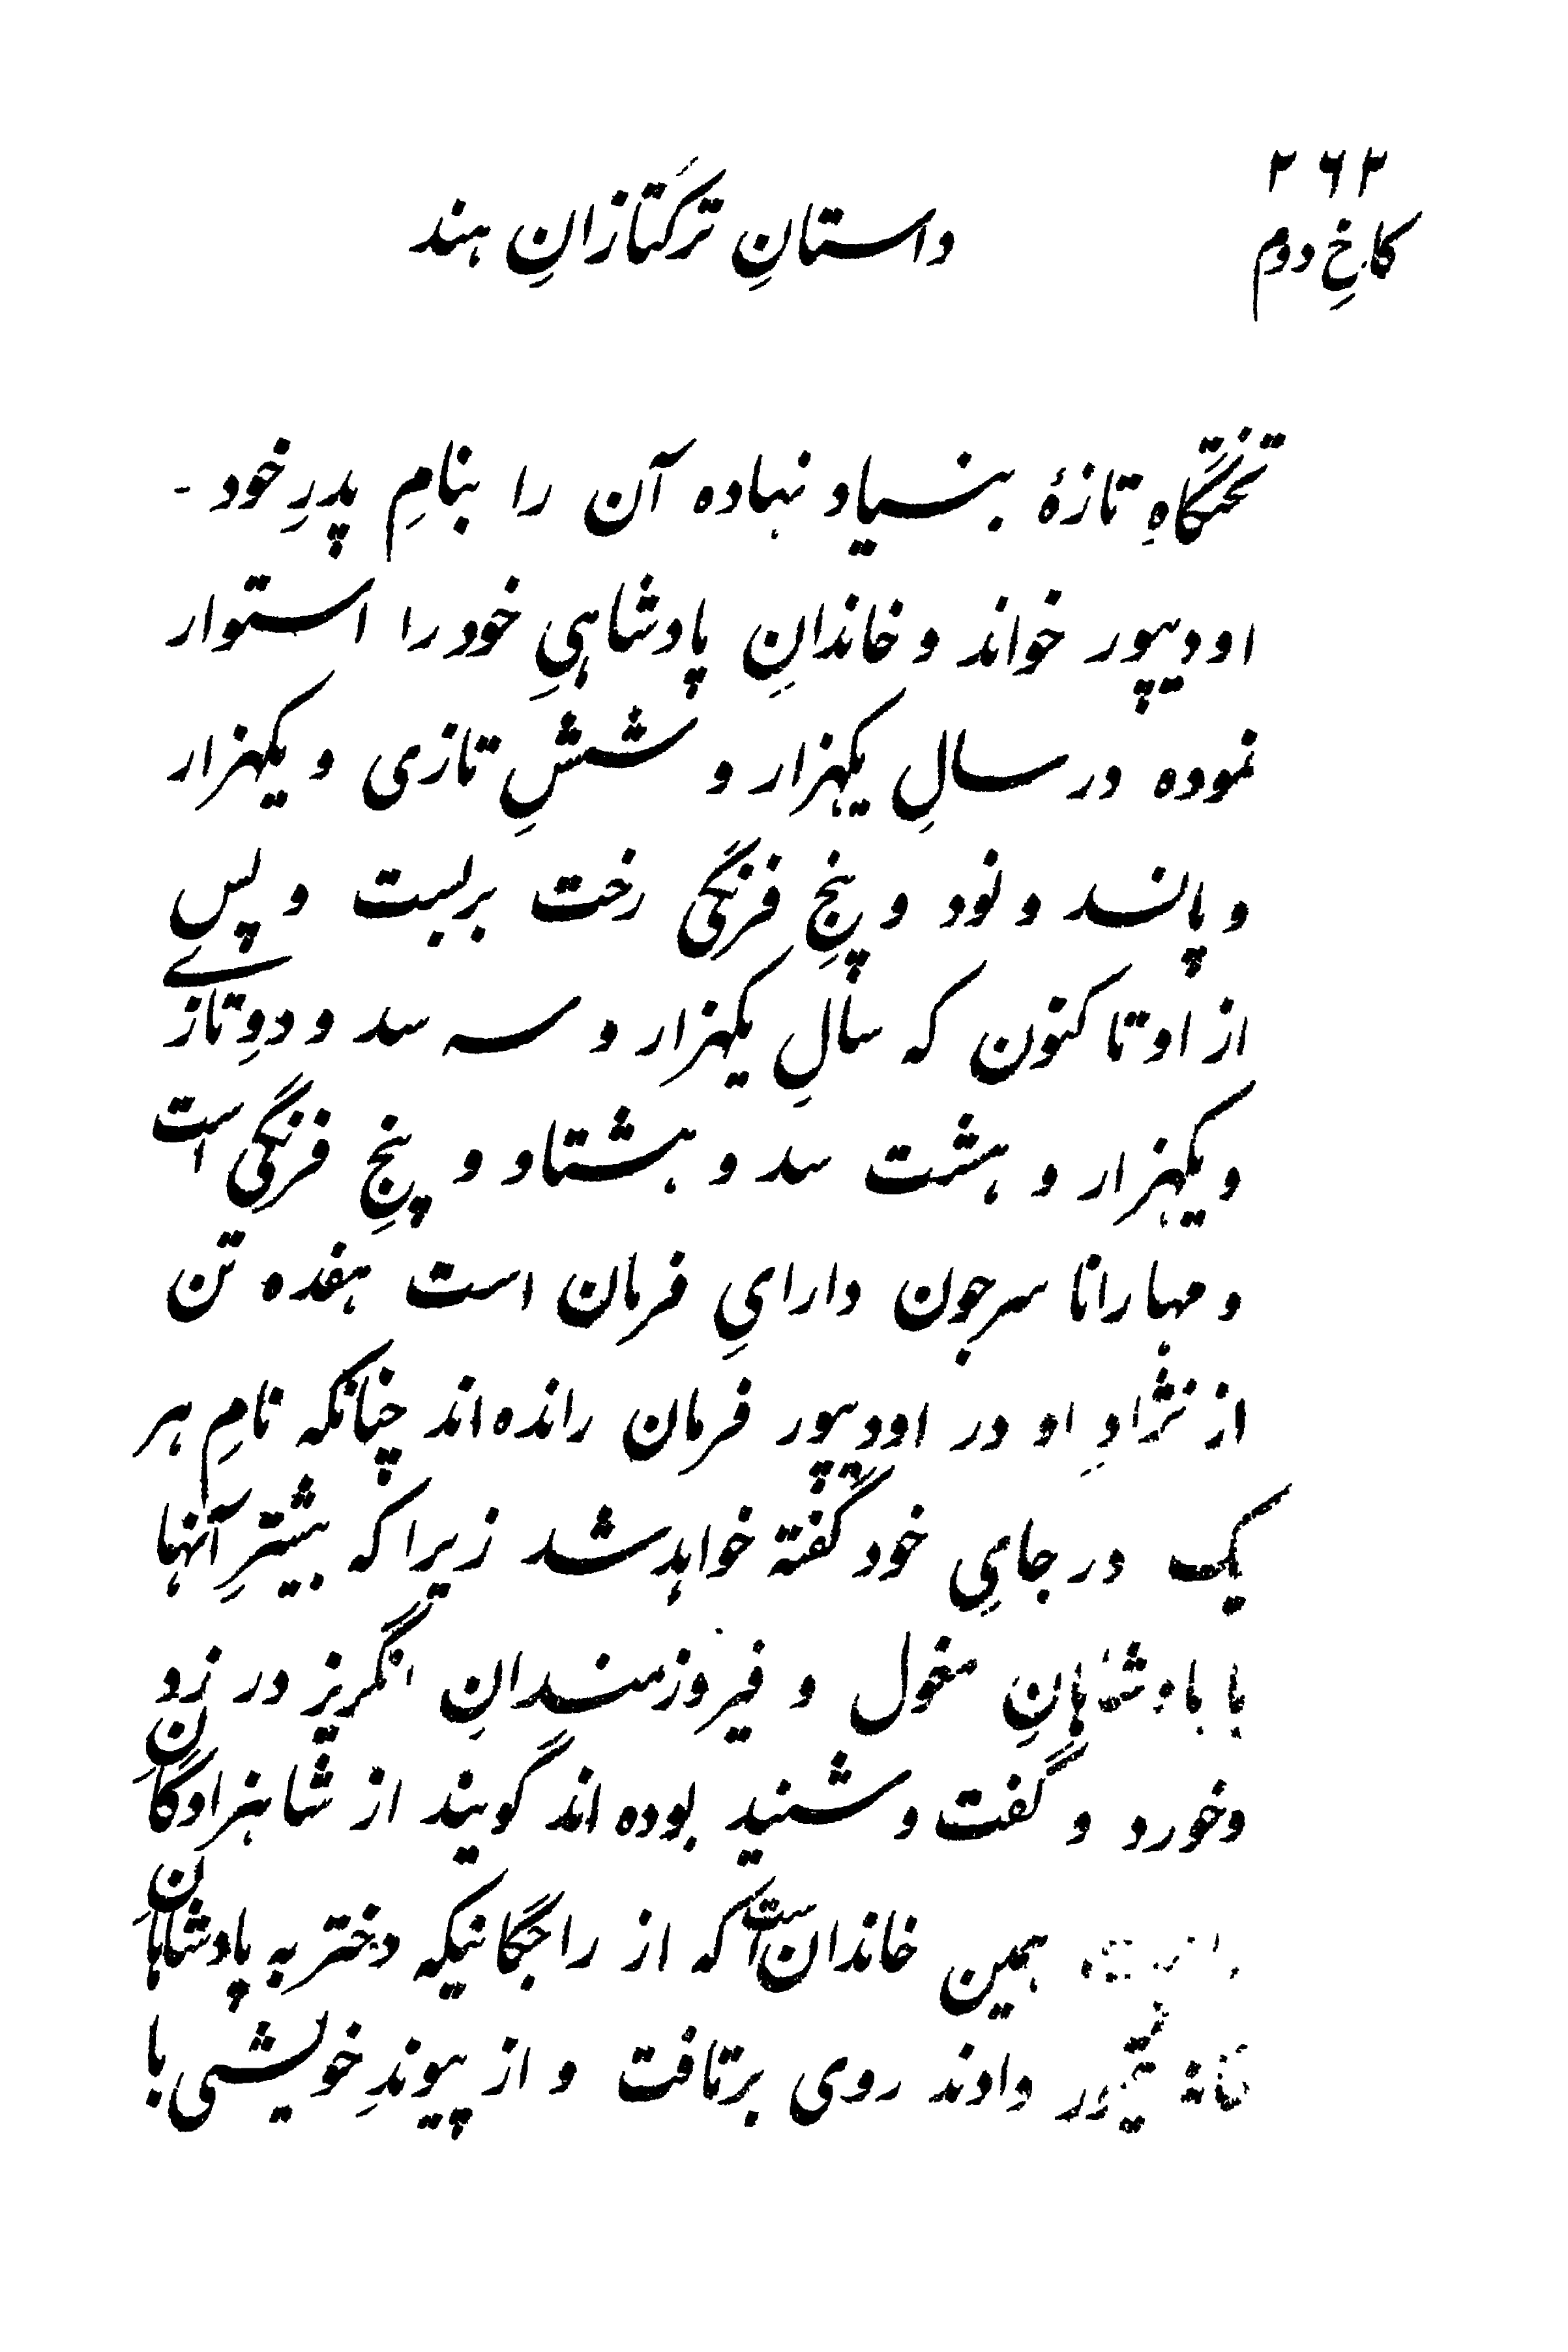 ۲۶۳
کاخِ دوم
داستانِ ترکَتازانِ هند
تختگاهِ تازهٔ بنسیاد نهاده آن را بنامِ پدرِ خود -
اودیپور خواند و خاندانِ پادشاهیِ خود را استوار
نموده در سالِ یکهزار و ششِ تازی و یکهزار
و پانسد و نود و پنجِ فرنگی رخت بربست و پس
از او تا کنون که سالِ یکهزار و سه سد و دوِ تازے
و یکهزار و هشت سد و هشتاد و پنجِ فرنگی است
و مهارانا سرجون دارایِ فرمان است هفده تن
از نژادِ او در اودیپور فرمان رانده اند چنانکه نامِ هر
یک در جایِ خود گفته خواهد شد زیرا که بیشترِ آنها
با بادشاهانِ مغول و فیروزمندانِ انگریز در زد
و خورد و گفت و شنید بوده اند گویند از شاهزادگانِ
همین خاندان است که از راجگانیکه دختر به پادشاهانِ
تیمور دادند روی برتافت و از پیوندِ خویشی با